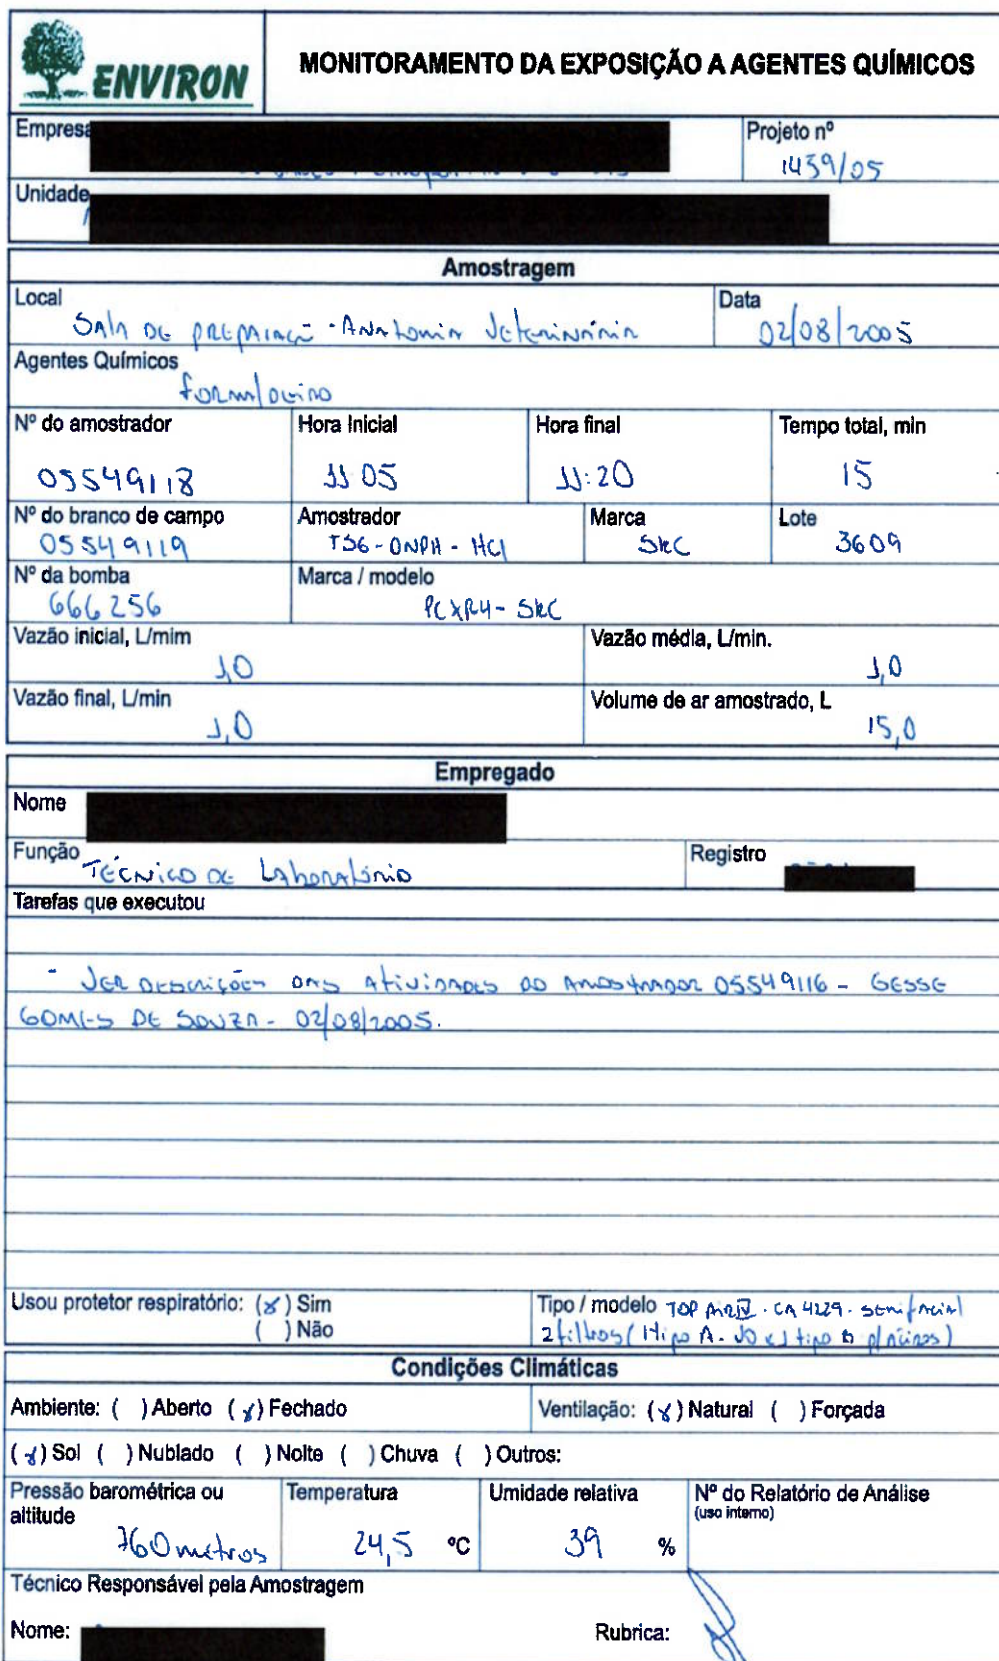 ENVIRON
MONITORAMENTO DA EXPOSIÇÃO A AGENTES QUÍMICOS
Empresa
Projeto nº
1439/05
Unidade
Amostragem
Local
Sala de preparaçã - Anatomia Veterinária
Data
02/08/2005
Agentes Químicos
formaldeído
Nº do amostrador
Hora Inicial
Hora final
Tempo total, min
05549118
11 05
11:20
15
Nº do branco de campo
Amostrador
Marca
Lote
05549119
DNPH - HCl
SKC
3609
Nº da bomba
Marca / modelo
666256
PCXR4 - SKC
Vazão inicial, L/mim
Vazão média, L/min.
1,0
1,0
Vazão final, L/min
Volume de ar amostrado, L
1,0
15,0
Empregado
Nome
Função
Técnico de Laboratório
Registro
Tarefas que executou
- Ver descrições das atividades do amostrador 05549116 - GESSE
GOMES DE SOUZA - 02/08/2005.
Usou protetor respiratório: (x) Sim
( ) Não
Tipo / modelo TOP AIR IV - CA 4229 - semifacial
2 filtros (
Condições Climáticas
Ambiente: ( ) Aberto (x) Fechado
Ventilação: (x) Natural ( ) Forçada
(x) Sol ( ) Nublado ( ) Noite ( ) Chuva ( ) Outros:
Pressão barométrica ou
altitude
Temperatura
Umidade relativa
Nº do Relatório de Análise
(uso interno)
760 metros
24,5 ºC
39 %
Técnico Responsável pela Amostragem
Nome:
Rubrica: